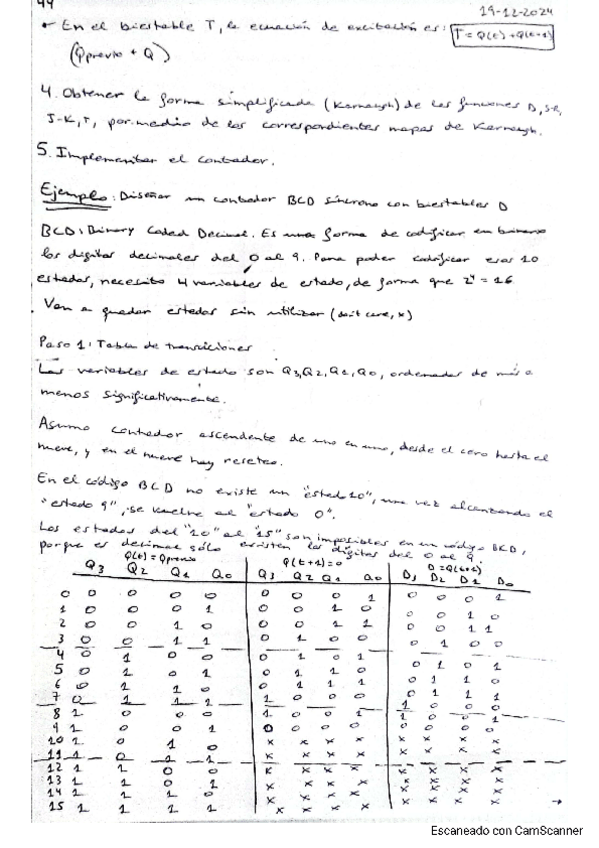 44
19-12-2024
• En el biestable T, la ecuación de excitación es: T = Q(t) + Q(t+1)
(Qprevio + Q)
4. Obtener la forma simplificada (Karnaugh) de las funciones D, S-R,
J-K, T, por medio de los correspondientes mapas de Karnaugh.
5. Implementar el contador.
Ejemplo: Diseñar un contador BCD síncrono con biestables D
BCD: Binary Coded Decimal. Es una forma de codificar en binario
los dígitos decimales del 0 al 9. Para poder codificar esos 10
estados, necesito 4 variables de estado, de forma que 2⁴ = 16
Van a quedar estados sin utilizar (don't care, x)
Paso 1: Tabla de transiciones
Las variables de estado son Q3, Q2, Q1, Q0, ordenadas de más a
menos significativamente.
Asumo contador ascendente de uno en uno, desde el cero hasta el
nueve, y en el nueve hay reseteo.
En el código BCD no existe un "estado 10", una vez alcanzando el
"estado 9", se vuelve al "estado 0".
Los estados del "10" al "15" son imposibles en un código BCD,
porque es decimal sólo existen los dígitos del 0 al 9.
Q(t) = Qprevio Q(t+1) = Q D = Q(t+1)
Q3 Q2 Q1 Q0 Q3 Q2 Q1 Q0 D3 D2 D1 D0
0 0 0 0 0 0 0 0 1 0 0 0 1
1 0 0 0 1 0 0 1 0 0 0 1 0
2 0 0 1 0 0 0 1 1 0 0 1 1
3 0 0 1 1 0 1 0 0 0 1 0 0
4 0 1 0 0 0 1 0 1 0 1 0 1
5 0 1 0 1 0 1 1 0 0 1 1 0
6 0 1 1 0 0 1 1 1 0 1 1 1
7 0 1 1 1 1 0 0 0 1 0 0 0
8 1 0 0 0 1 0 0 1 1 0 0 1
9 1 0 0 1 0 0 0 0 0 0 0 0
10 1 0 1 0 x x x x x x x x
11 1 0 1 1 x x x x x x x x
12 1 1 0 0 x x x x x x x x
13 1 1 0 1 x x x x x x x x
14 1 1 1 0 x x x x x x x x
15 1 1 1 1 x x x x x x x x
→
Escaneado con CamScanner